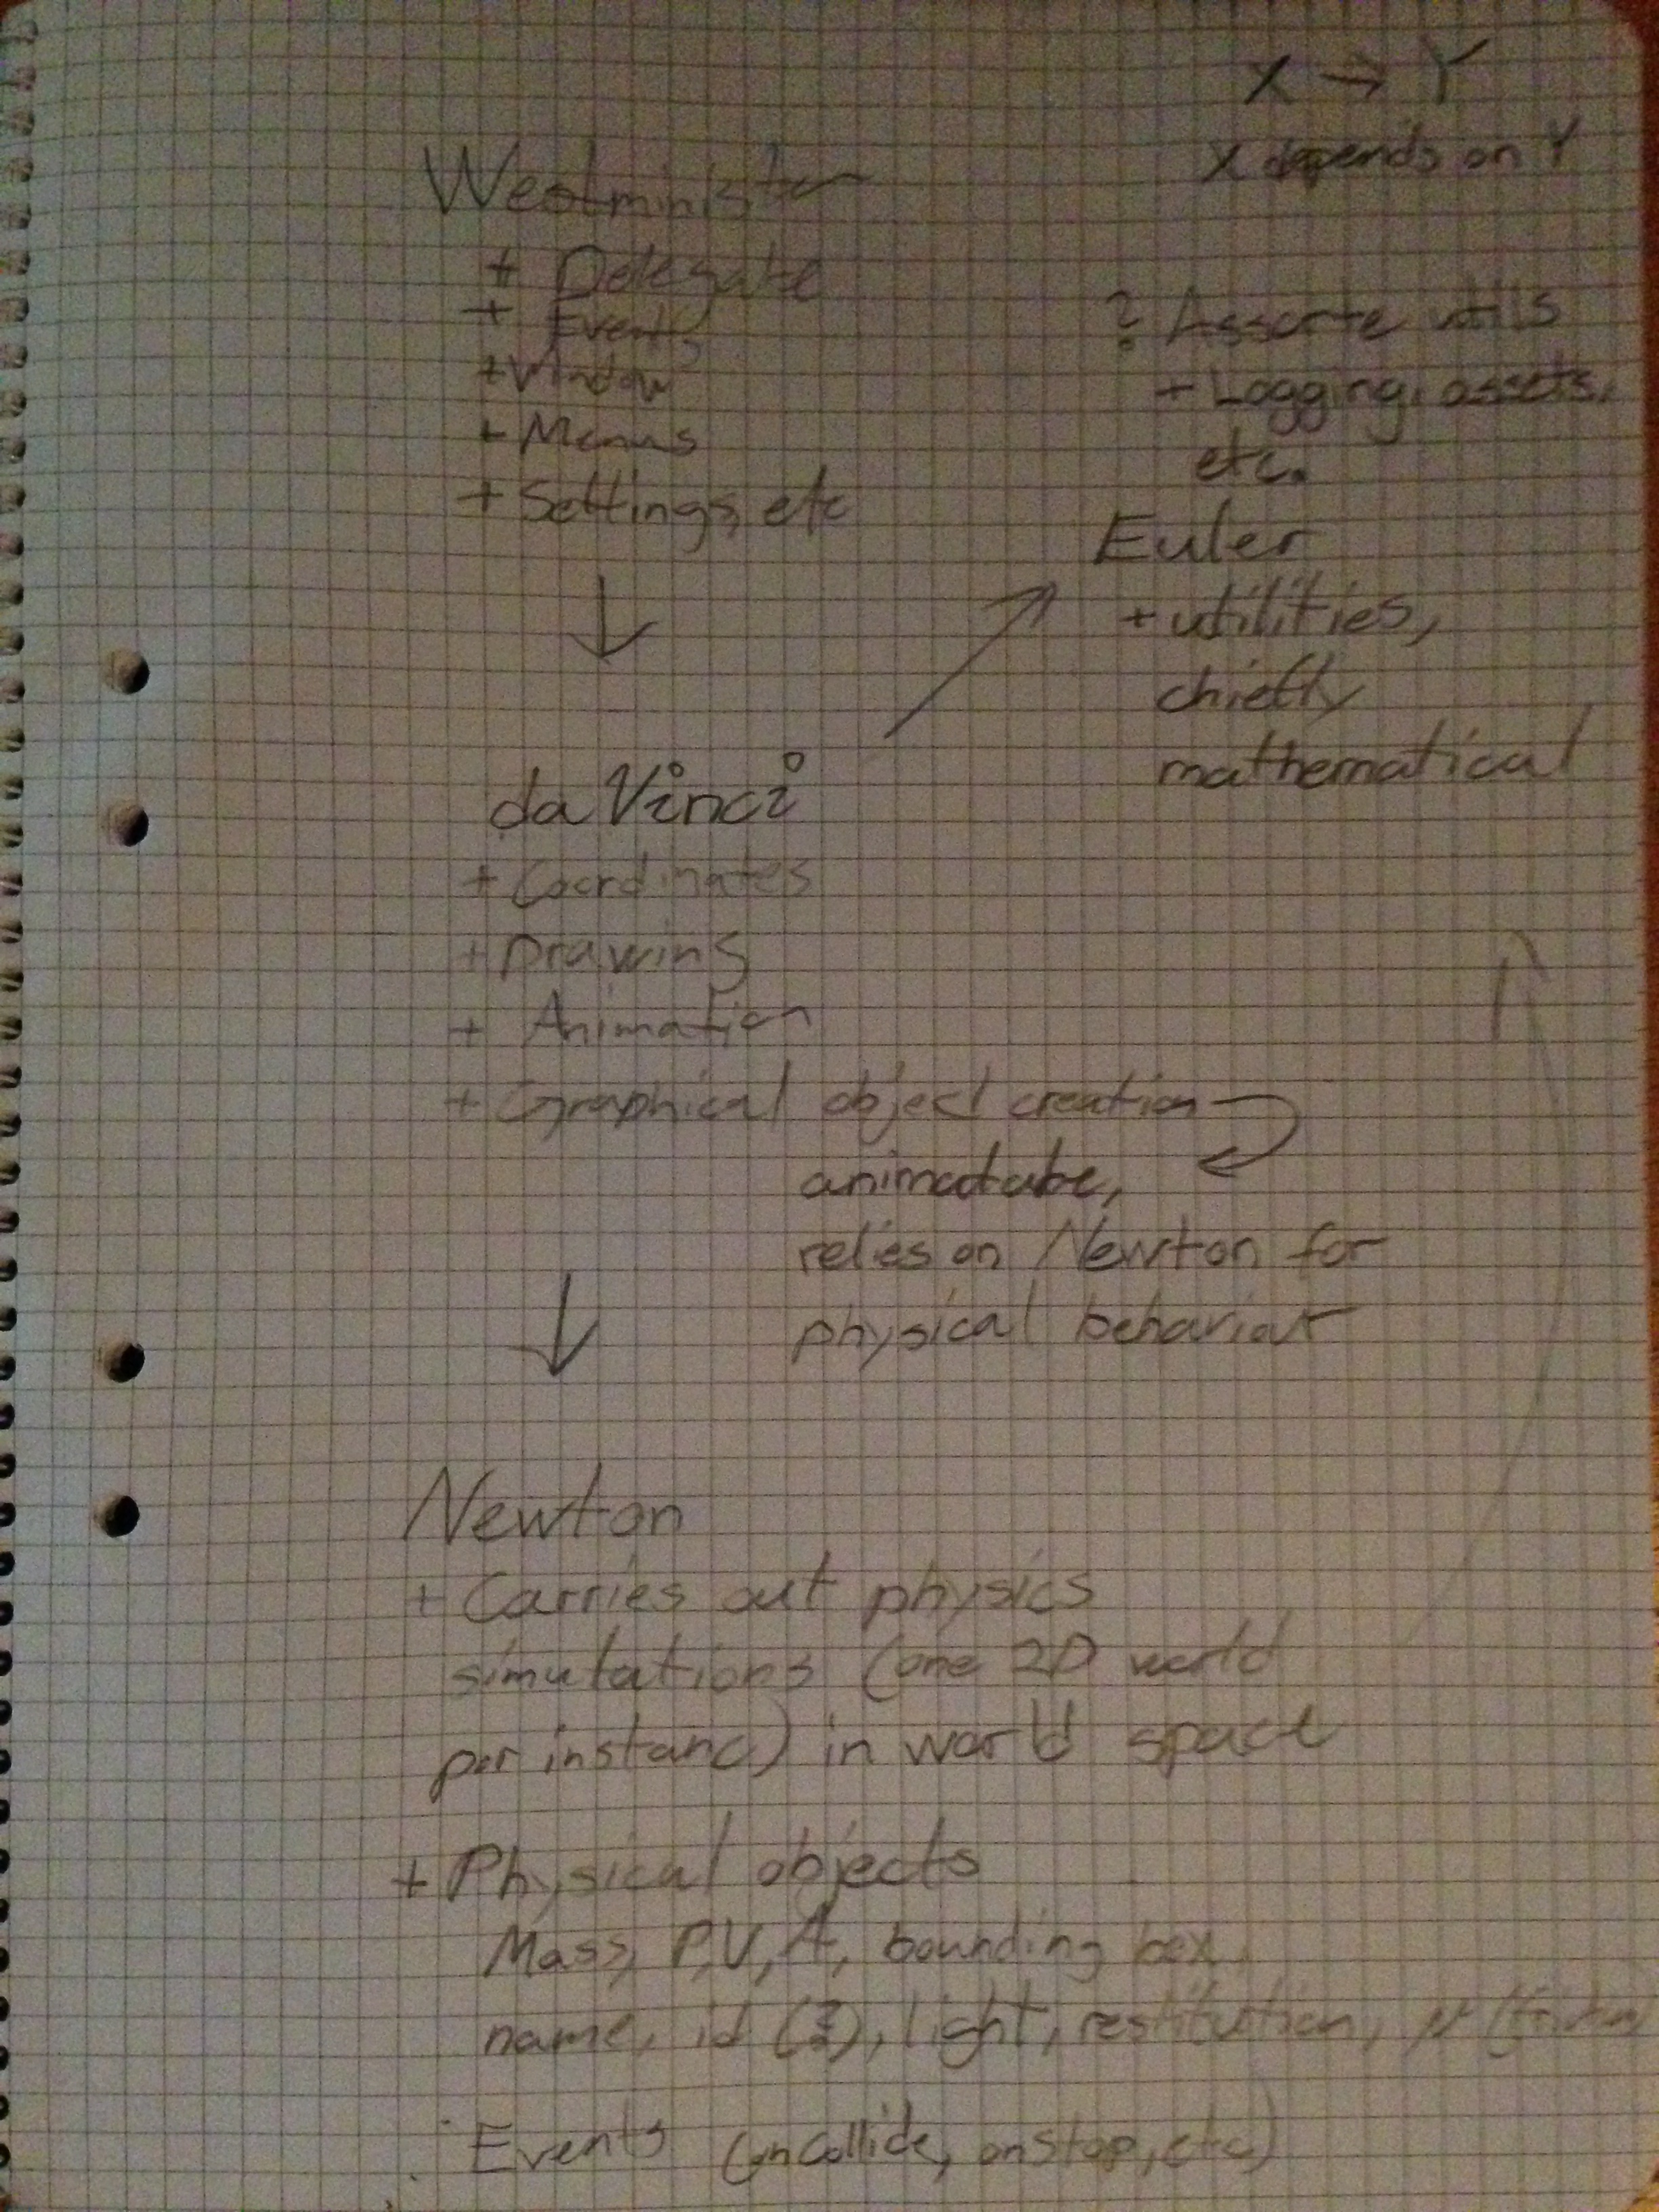 X → Y
X depends on Y
Westminister
+ Delegate
+ Events
+ Window
+ Menus
+ Settings, etc
? Assorte utils
+ Logging, assets,
etc.
Euler
+ utilities,
chiefly
mathematical
da Vinci
+ Coordinates
+ Drawing
+ Animation
+ Graphical object creation
animatabe,
relies on Newton for
physical behaviour
Newton
+ Carries out physics
simulations (one 2D world
per instanc) in world space
+ Physical objects
Mass, P, V, A, bounding box
name, id (?), light, restitution, μ (friction)
Events (onCollide, onStop, etc)